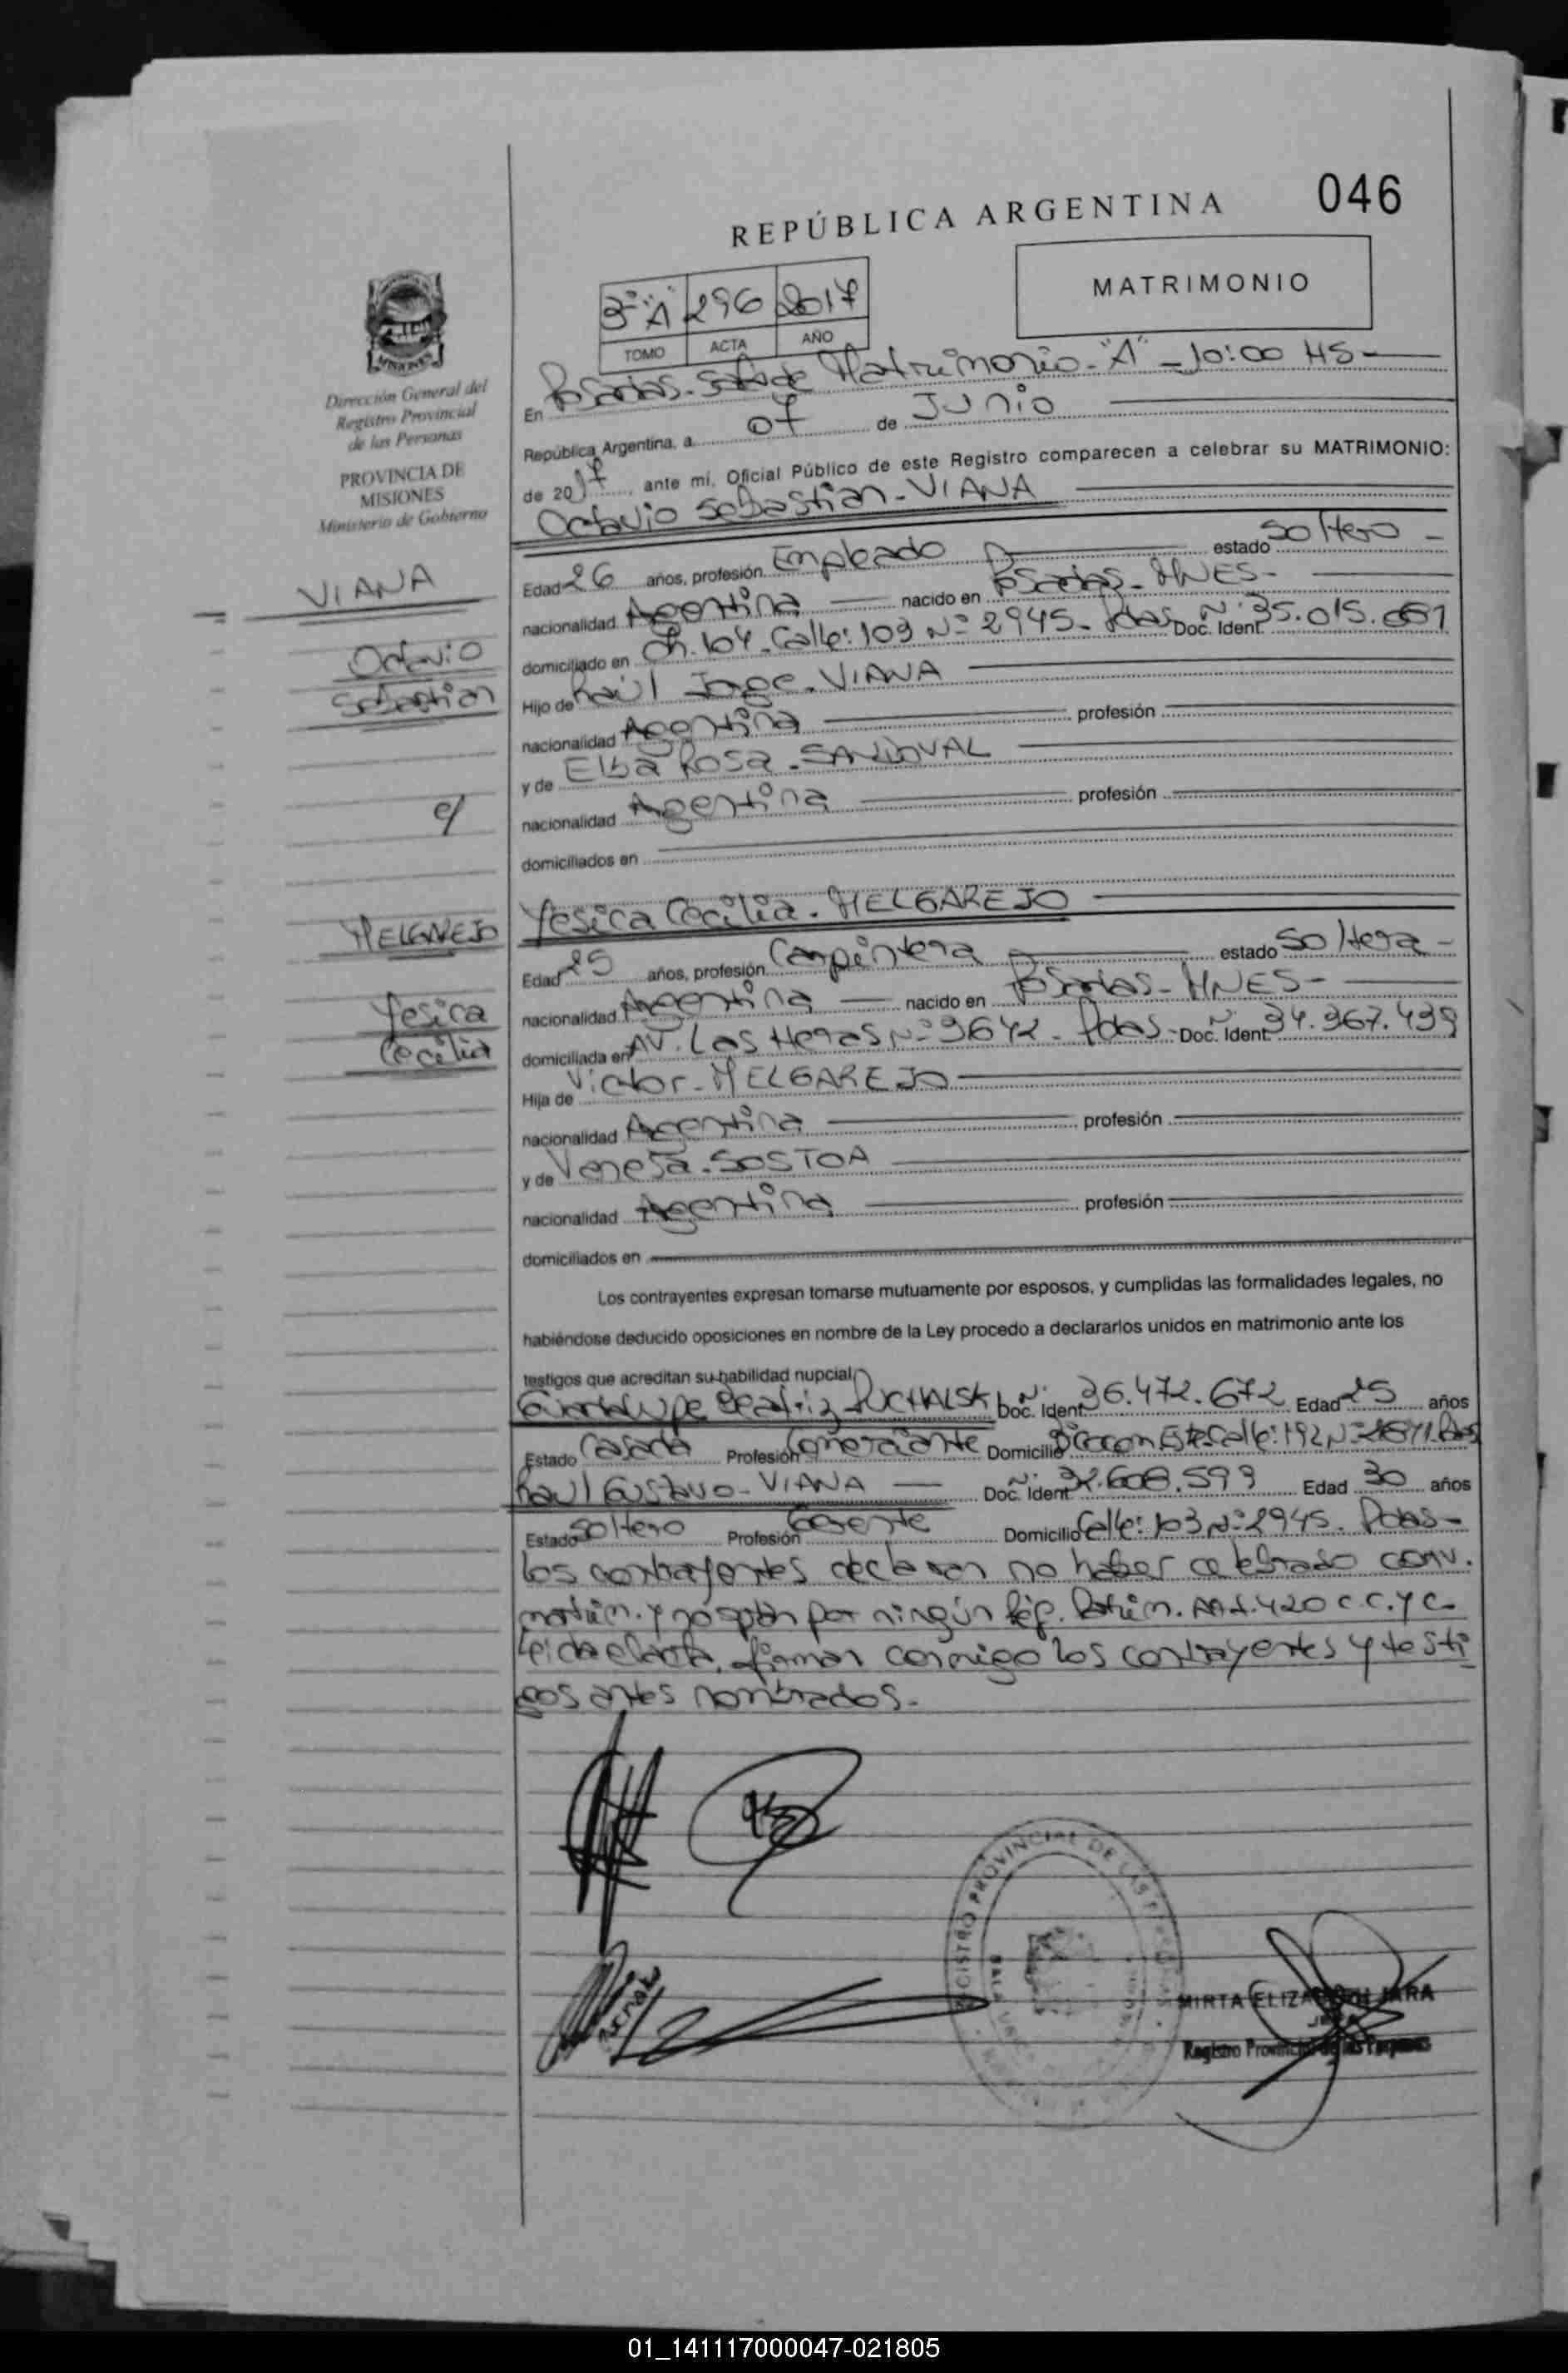 REPÚBLICA ARGENTINA
046
MATRIMONIO
3º "A" 296 2017
TOMO ACTA AÑO
Dirección General del
Registro Provincial
de las Personas
PROVINCIA DE
MISIONES
Ministerio de Gobierno
VIANA
Octavio
Sebastian
c/
MELGAREJO
Yesica
Cecilia
En Posadas - Sala de Matrimonio - "A" - 10:00 HS -
República Argentina, a 07 de JUNIO
de 2017, ante mí, Oficial Público de este Registro comparecen a celebrar su MATRIMONIO:
Octavio Sebastian - VIANA
Edad 26 años, profesión Empleado estado Soltero -
nacionalidad Argentina nacido en Posadas - MNES -
domiciliado en Ch. 104 - Calle: 103 Nº 2945 - Pdas Doc. Ident. Nº 35.015.
Hijo de Raúl Jorge - VIANA
nacionalidad Argentina profesión
y de Elba Rosa - SANDOVAL
nacionalidad Argentina profesión
domiciliados en
Yesica Cecilia - MELGAREJO
Edad 25 años, profesión Carpintera estado Soltera -
nacionalidad Argentina nacido en Posadas - MNES -
domiciliada en AV. Las Heras Nº 3642 - Pdas - Doc. Ident. Nº 34.367.439
Hija de Victor - MELGAREJO
nacionalidad Argentina profesión
y de Vanesa - SOSTOA
nacionalidad Argentina profesión
domiciliados en
Los contrayentes expresan tomarse mutuamente por esposos, y cumplidas las formalidades legales, no
habiéndose deducido oposiciones en nombre de la Ley procedo a declararlos unidos en matrimonio ante los
testigos que acreditan su habilidad nupcial
Guadalupe Beatriz PUCHALSKI Doc. Ident. Nº 36.472.672 Edad 25 años
Estado Casada Profesión Comerciante Domicilio Calle: 192 Nº
Raul Gustavo - VIANA Doc. Ident. Nº 32.608.593 Edad 30 años
Estado Soltero Profesión Gerente Domicilio Calle: 103 Nº 2945 - Pdas -
los contrayentes declaran no haber celebrado conv.
matrim. y no optan por ningún Rég. Patrim. Art. 420 C.C. y C.
Leida el acta, firman conmigo los contrayentes y testi
gos antes nombrados.
REGISTRO PROVINCIAL DE LAS PERSONAS
MIRTA ELIZABETH JARA
JEFA
Registro Provincial de las Personas
01_141117000047-021805